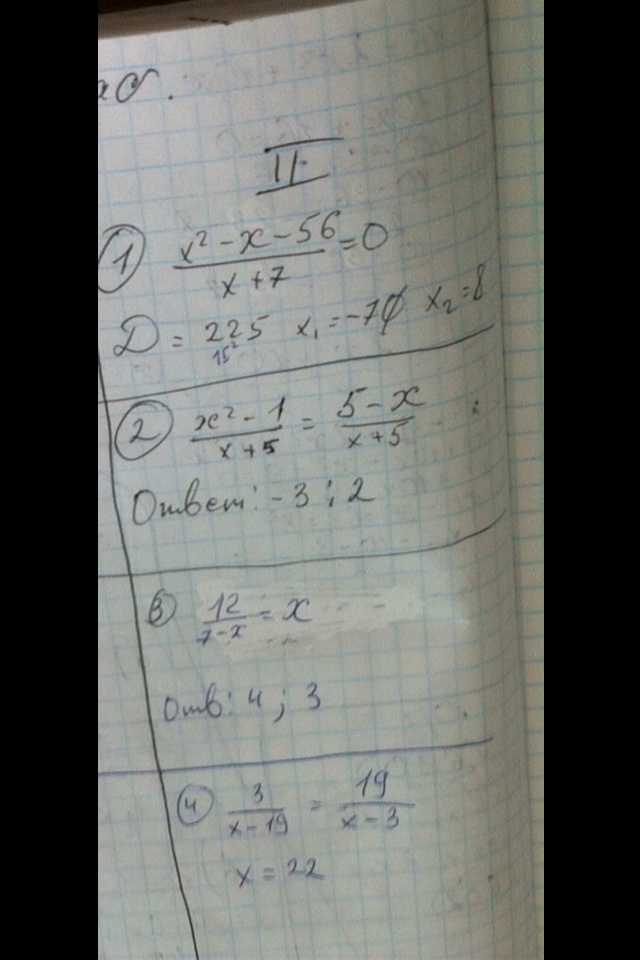 II
1 x² - x - 56 / x + 7 = 0
D = 225 x₁ = -7 ∅ x₂ = 8
15²
2 x² - 1 / x + 5 = 5 - x / x + 5
Ответ: -3 ; 2
3 12 / 7 - x = x
Отв: 4 ; 3
4 3 / x - 19 = 19 / x - 3
x = 22